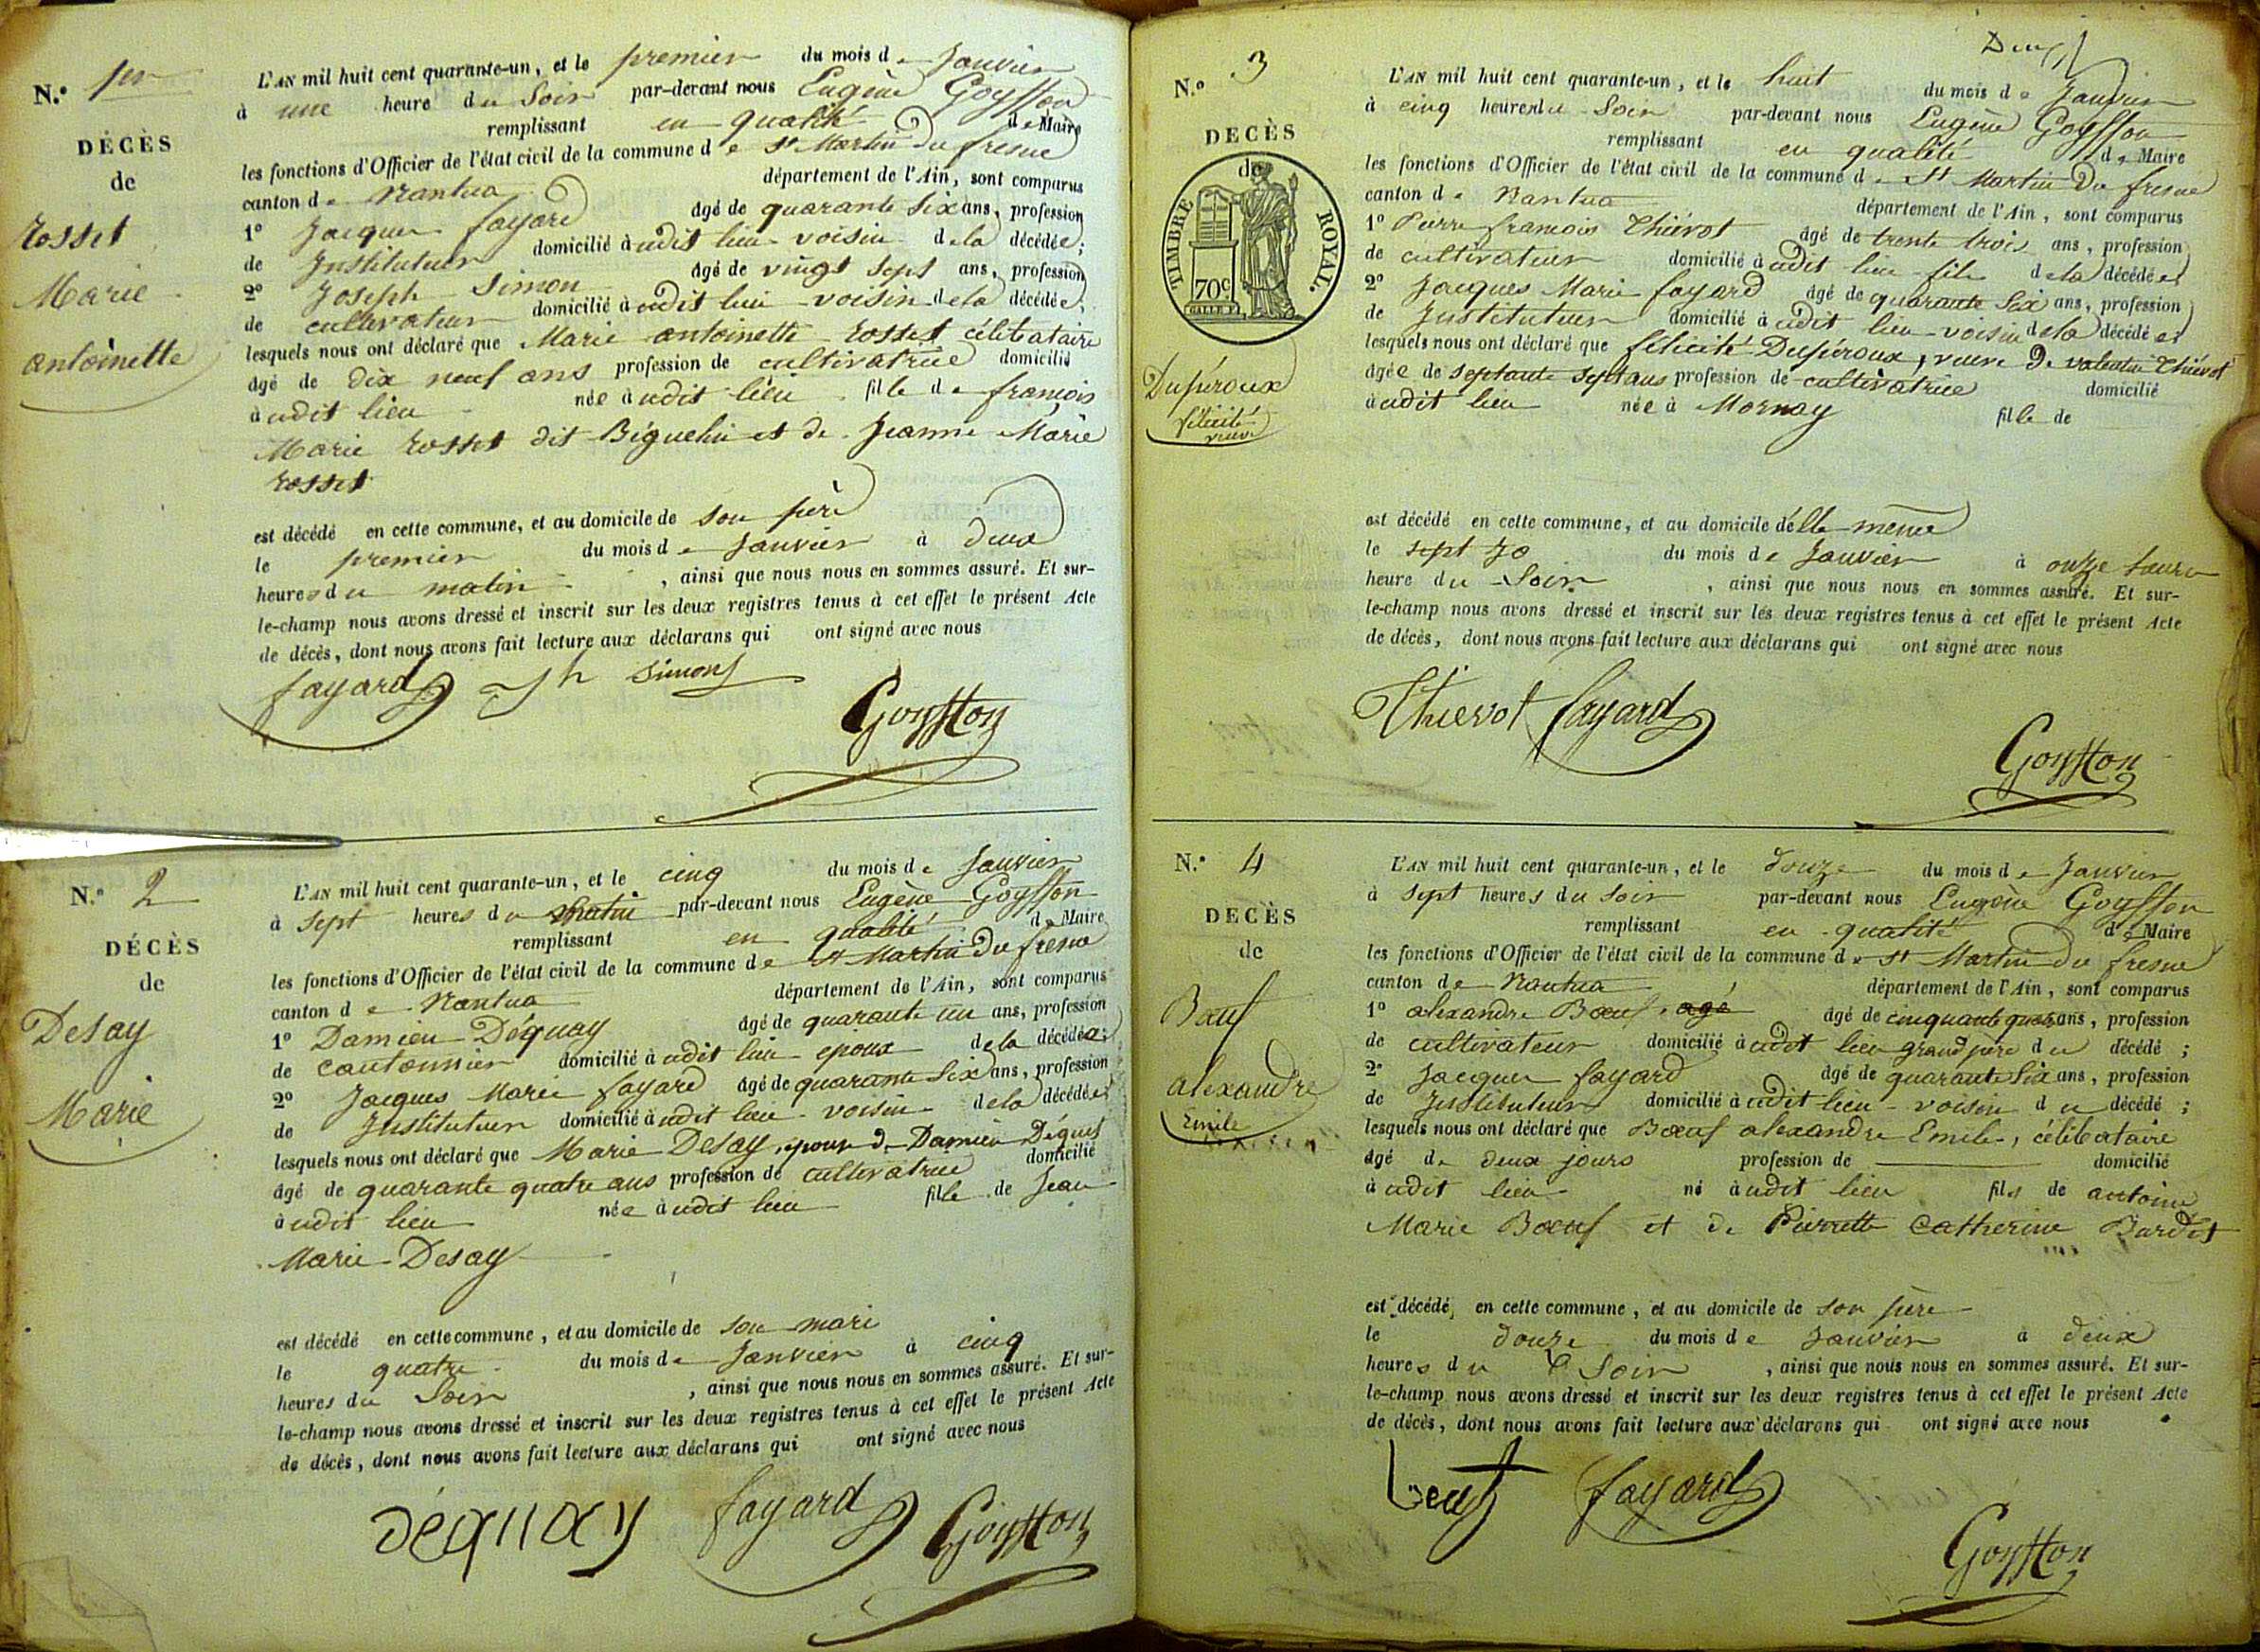 N.º 1er
DÉCÈS
de
Rosset
Marie
antoinette
L'AN mil huit cent quarante-un, et le premier du mois de Janvier
à une heure du Soir par-devant nous Eugène Goyffon
remplissant en qualité de Maire
les fonctions d'Officier de l'état civil de la commune de St Martin du fresne
canton de Nantua département de l'Ain, sont comparus
1º Jacques fayard âgé de quarante Six ans, profession
de Instituteur domicilié à udit lieu voisin de la décédée;
2º Joseph Simon âgé de vingt sept ans, profession
de cultivateur domicilié à udit lieu voisin de la décédée;
lesquels nous ont déclaré que Marie antoinette Rosset célibataire
âgé de dix neuf ans profession de cultivatrice domicilié
à udit lieu née à udit lieu fille de françois
Marie Rosset dit Béguelin et de Jeanne Marie
Rosset
est décédé en cette commune, et au domicile de son père
le premier du mois de Janvier à deux
heures du matin, ainsi que nous nous en sommes assuré. Et sur-
le-champ nous avons dressé et inscrit sur les deux registres tenus à cet effet le présent Acte
de décès, dont nous avons fait lecture aux déclarans qui ont signé avec nous
fayard Jh Simon
Goyffon
N.º 2
DÉCÈS
de
Desay
Marie
L'AN mil huit cent quarante-un, et le cinq du mois de Janvier
à sept heures du matin par-devant nous Eugène Goyffon
remplissant en qualité de Maire
les fonctions d'Officier de l'état civil de la commune de St Martin du fresne
canton de Nantua département de l'Ain, sont comparus
1º Damien Déquay âgé de quarante un ans, profession
de cantonnier domicilié à udit lieu epoux de la décédée;
2º Jacques Marie fayard âgé de quarante Six ans, profession
de Instituteur domicilié à udit lieu voisin de la décédée;
lesquels nous ont déclaré que Marie Desay, epouse de Damien
âgé de quarante quatre ans profession de cultivatrice domicilié
à udit lieu née à udit lieu fille de Jean
Marie Desay
est décédé en cette commune, et au domicile de son mari
le quatre du mois de Janvier à cinq
heures du Soir, ainsi que nous nous en sommes assuré. Et sur-
le-champ nous avons dressé et inscrit sur les deux registres tenus à cet effet le présent Acte
de décès, dont nous avons fait lecture aux déclarans qui ont signé avec nous
déquay fayard Goyffon
N.º 3
DECÈS
de
TIMBRE ROYAL.
70c
Dupéroux
félicité
veuve
L'AN mil huit cent quarante-un, et le huit du mois de Janvier
à cinq heures du Soir par-devant nous Eugène Goyffon
remplissant en qualité de Maire
les fonctions d'Officier de l'état civil de la commune de St Martin du fresne
canton de Nantua département de l'Ain, sont comparus
1º Pierre françois Thiévot âgé de trente trois ans, profession
de cultivateur domicilié à udit lieu fils de la décédée
2º Jacques Marie fayard âgé de quarante Six ans, profession
de Instituteur domicilié à udit lieu voisin de la décédée
lesquels nous ont déclaré que félicité Dupéroux, veuve de valentin Thiévot
âgée de septante sept ans profession de cultivatrice domicilié
à udit lieu née à Mornay fille de
est décédé en cette commune, et au domicile d'elle même
le sept du mois de Janvier à onze heure
heure du Soir, ainsi que nous nous en sommes assuré. Et sur-
le-champ nous avons dressé et inscrit sur les deux registres tenus à cet effet le présent Acte
de décès, dont nous avons fait lecture aux déclarans qui ont signé avec nous
Thievot fayard
Goyffon
N.º 4
DECÈS
de
Bœuf
alexandre
Emile
L'AN mil huit cent quarante-un, et le douze du mois de Janvier
à sept heures du Soir par-devant nous Eugène Goyffon
remplissant en qualité de Maire
les fonctions d'Officier de l'état civil de la commune de St Martin du fresne
canton de Nantua département de l'Ain, sont comparus
1º alexandre Bœuf, agé âgé de cinquante quatre ans, profession
de cultivateur domicilié à udit lieu grand père du décédé;
2º Jacques fayard âgé de quarante Six ans, profession
de Instituteur domicilié à udit lieu voisin du décédé;
lesquels nous ont déclaré que Bœuf alexandre Emile, célibataire
âgé de deux jours profession de domicilié
à udit lieu né à udit lieu fils de antoine
Marie Bœuf et de Pierrette Catherine Burdet
est décédé, en cette commune, et au domicile de son père
le douze du mois de Janvier à deux
heures du Soir, ainsi que nous nous en sommes assuré. Et sur-
le-champ nous avons dressé et inscrit sur les deux registres tenus à cet effet le présent Acte
de décès, dont nous avons fait lecture aux déclarans qui ont signé avec nous
beuf fayard
Goyffon